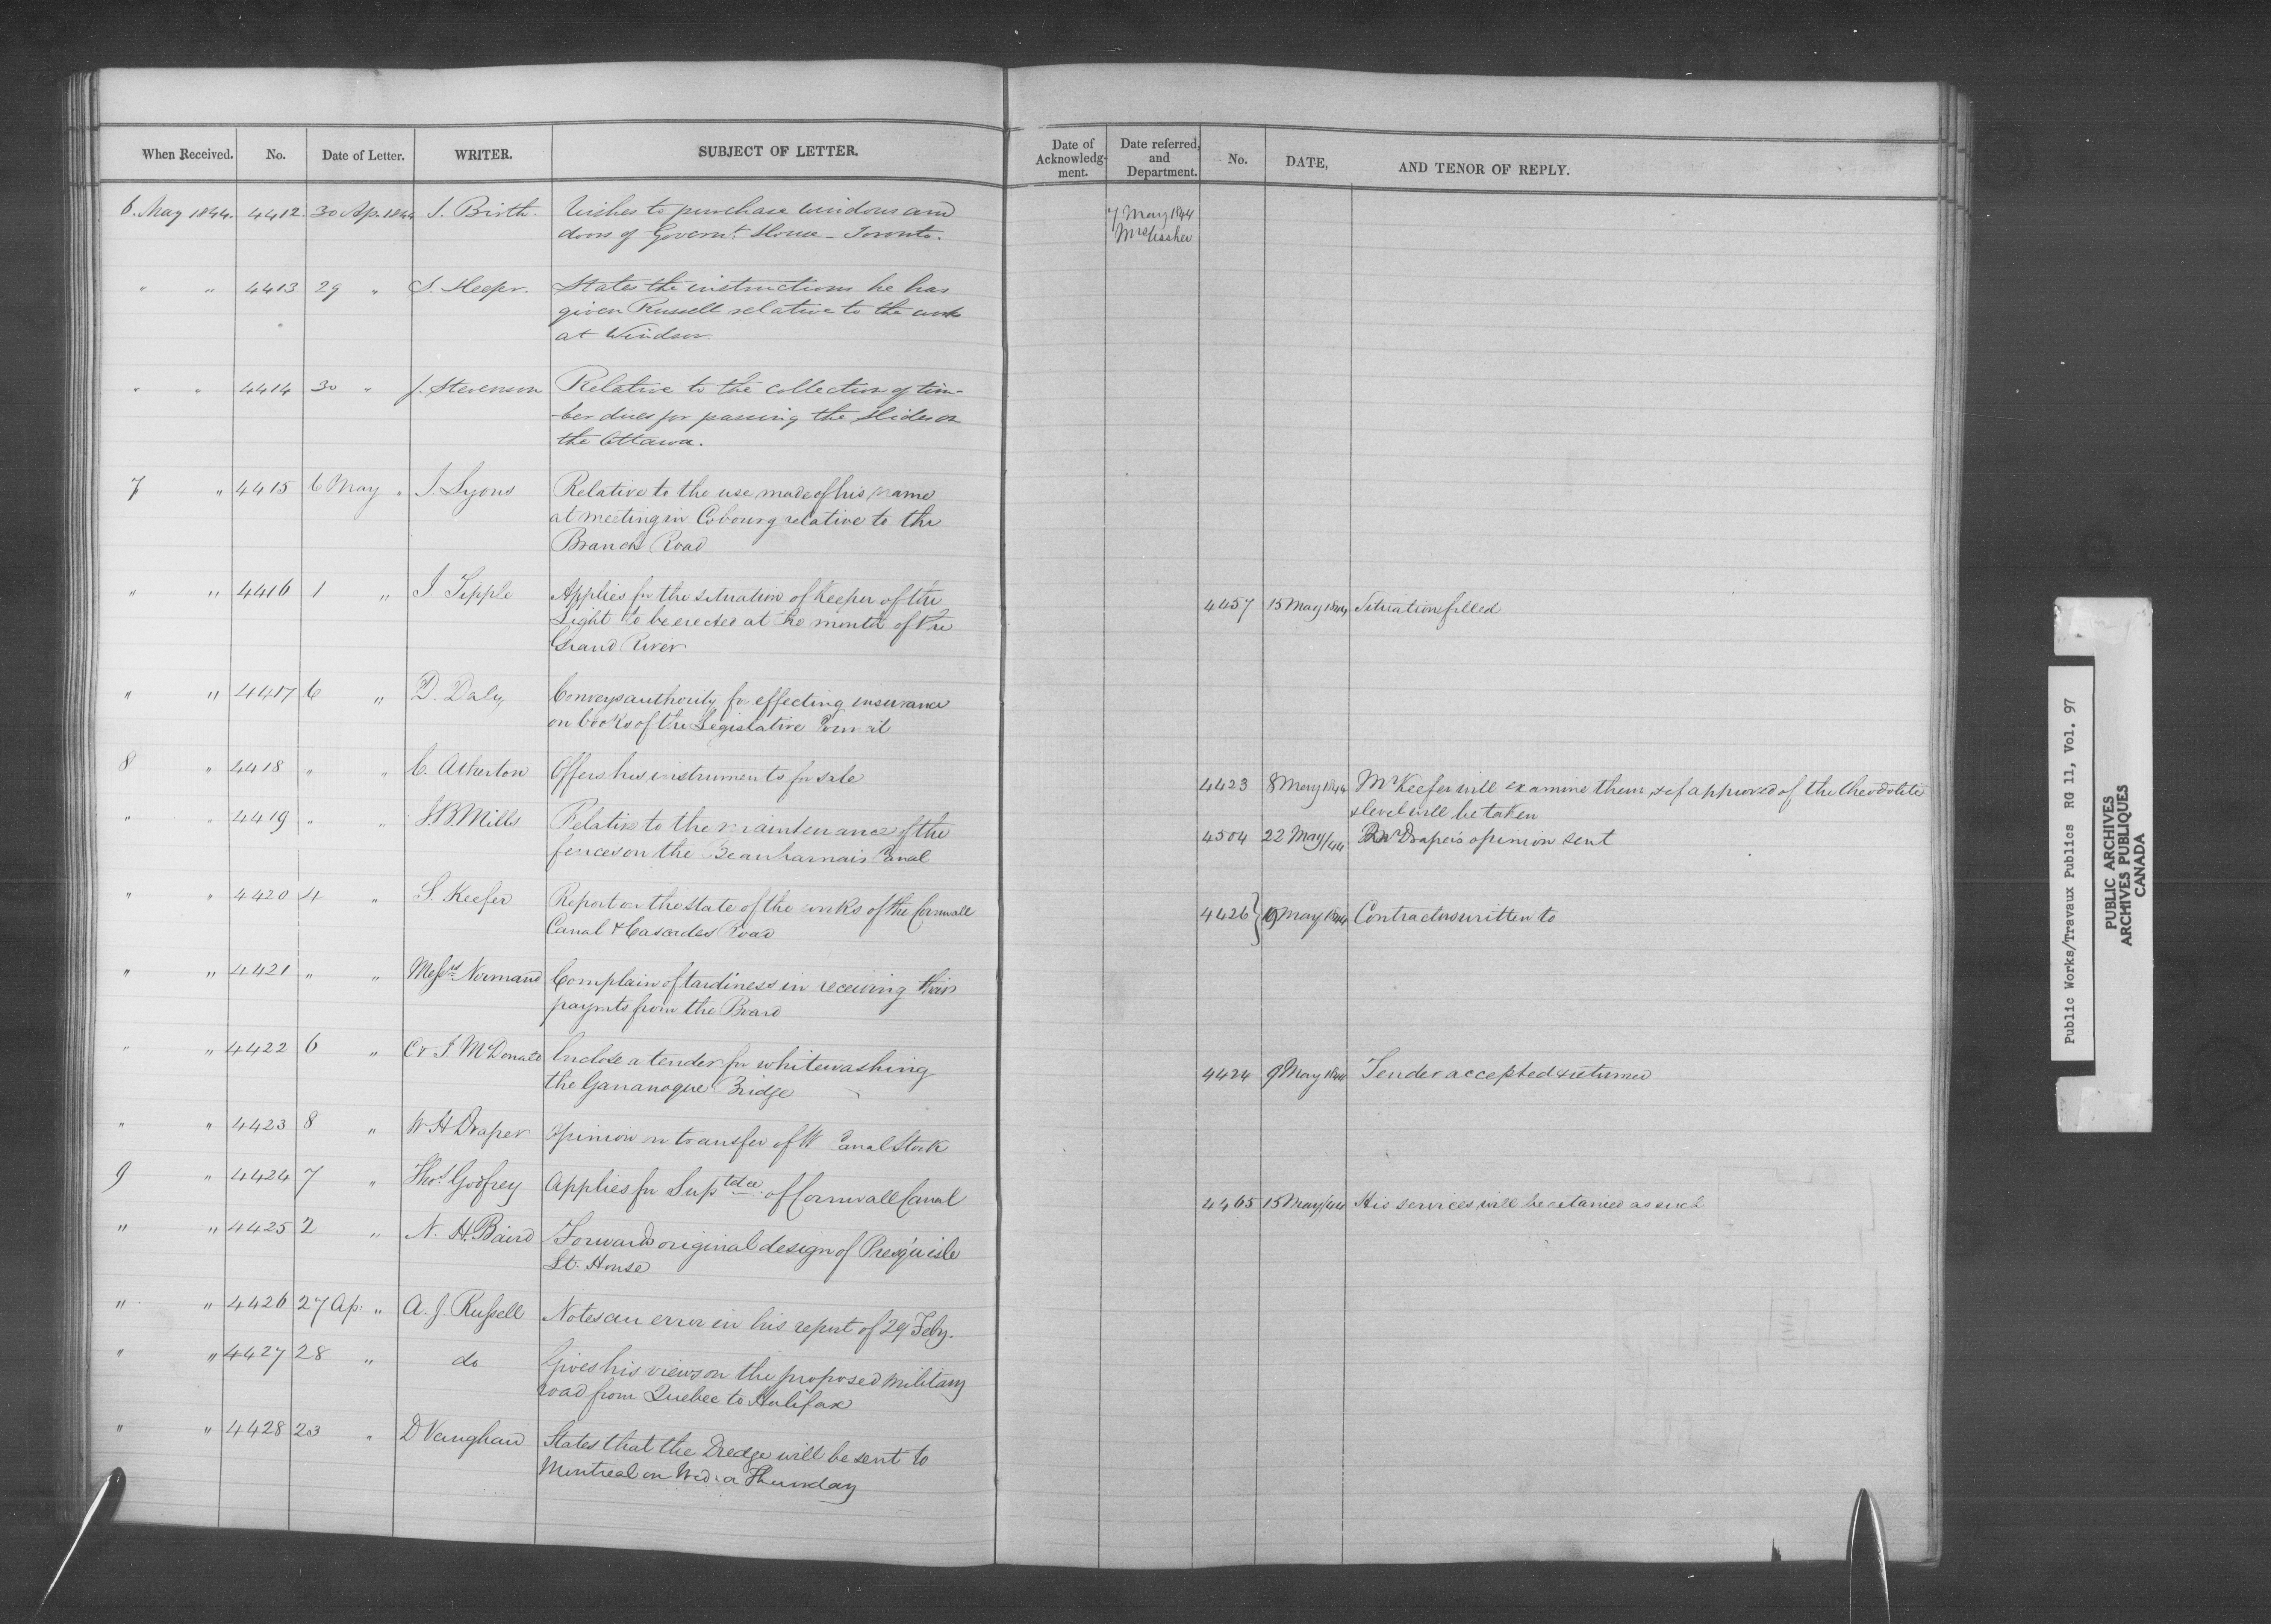 When Received. No. Date of Letter. WRITER. SUBJECT OF LETTER. Date of Acknowledg-ment. Date referred, and Department. No. DATE, AND TENOR OF REPLY.
6. May 1844. 4412. 30 Ap. 1844 J. Birth. Wishes to purchase windows and 7 May 1844
doors of Governt. House - Toronto.
" " 4413 29 " S. Keefer. States the instructions he has
given Russell relative to the work
at Windsor.
" " 4414 30 " J. Stevenson Relative to the collection of tim-
-ber dues for passing the slides on
the Ottawa.
7 " 4415 6 May " J. Lyons Relative to the use made of his name
at meeting in Cobourg relative to the
Branch Road
" " 4416 1 " J. Tipple Applies for the situation of Keeper of the 4457 15 May 1844 Situation filled
Light to be erected at the mouth of the
Grand River
" " 4417 6 " D. Daly Conveys authority for effecting insurance
on books of the Legislative Council
8 " 4418 " " C. Atherton Offers his instruments for sale 4423 8 May 1844 Mr Keefer will examine them, & if approved of the theodolite
& level will be taken
" " 4419 " " J.B. Mills Relative to the maintenance of the 4504 22 May/44 Mr Draper's opinion sent
fences on the Beauharnais Canal
" " 4420 4 " S. Keefer Report on the state of the works of the Cornwall 4426 } 9 May 1844 Contractors written to
Canal & Cascades Road
" " 4421 " " Messrs Normand Complain of tardiness in receiving their
paymts from the Board
" " 4422 6 " C & J. McDonald Enclose a tender for whitewashing 4424 9 May 1844 Tender accepted & returned
the Gananoque Bridge
" " 4423 8 " W H Draper Opinion on transfer of W. Canal Stock
9 " 4424 7 " Thos. Godfrey Applies for Suptdce of Cornwall Canal 4465 15 May/44 His services will be retained as such
" " 4425 2 " N. H. Baird Forwards original design of Presqu'isle
Lt. House
" " 4426 27 Ap. " A. J. Russell Notes an error in his report of 29 Feby.
" " 4427 28 " do Gives his views on the proposed Military
road from Quebec to Halifax
" " 4428 23 " D Vaughan States that the Dredge will be sent to
Montreal on Wed. or Thursday
Public Works/Travaux Publics RG 11, Vol. 97
PUBLIC ARCHIVES
ARCHIVES PUBLIQUES
CANADA